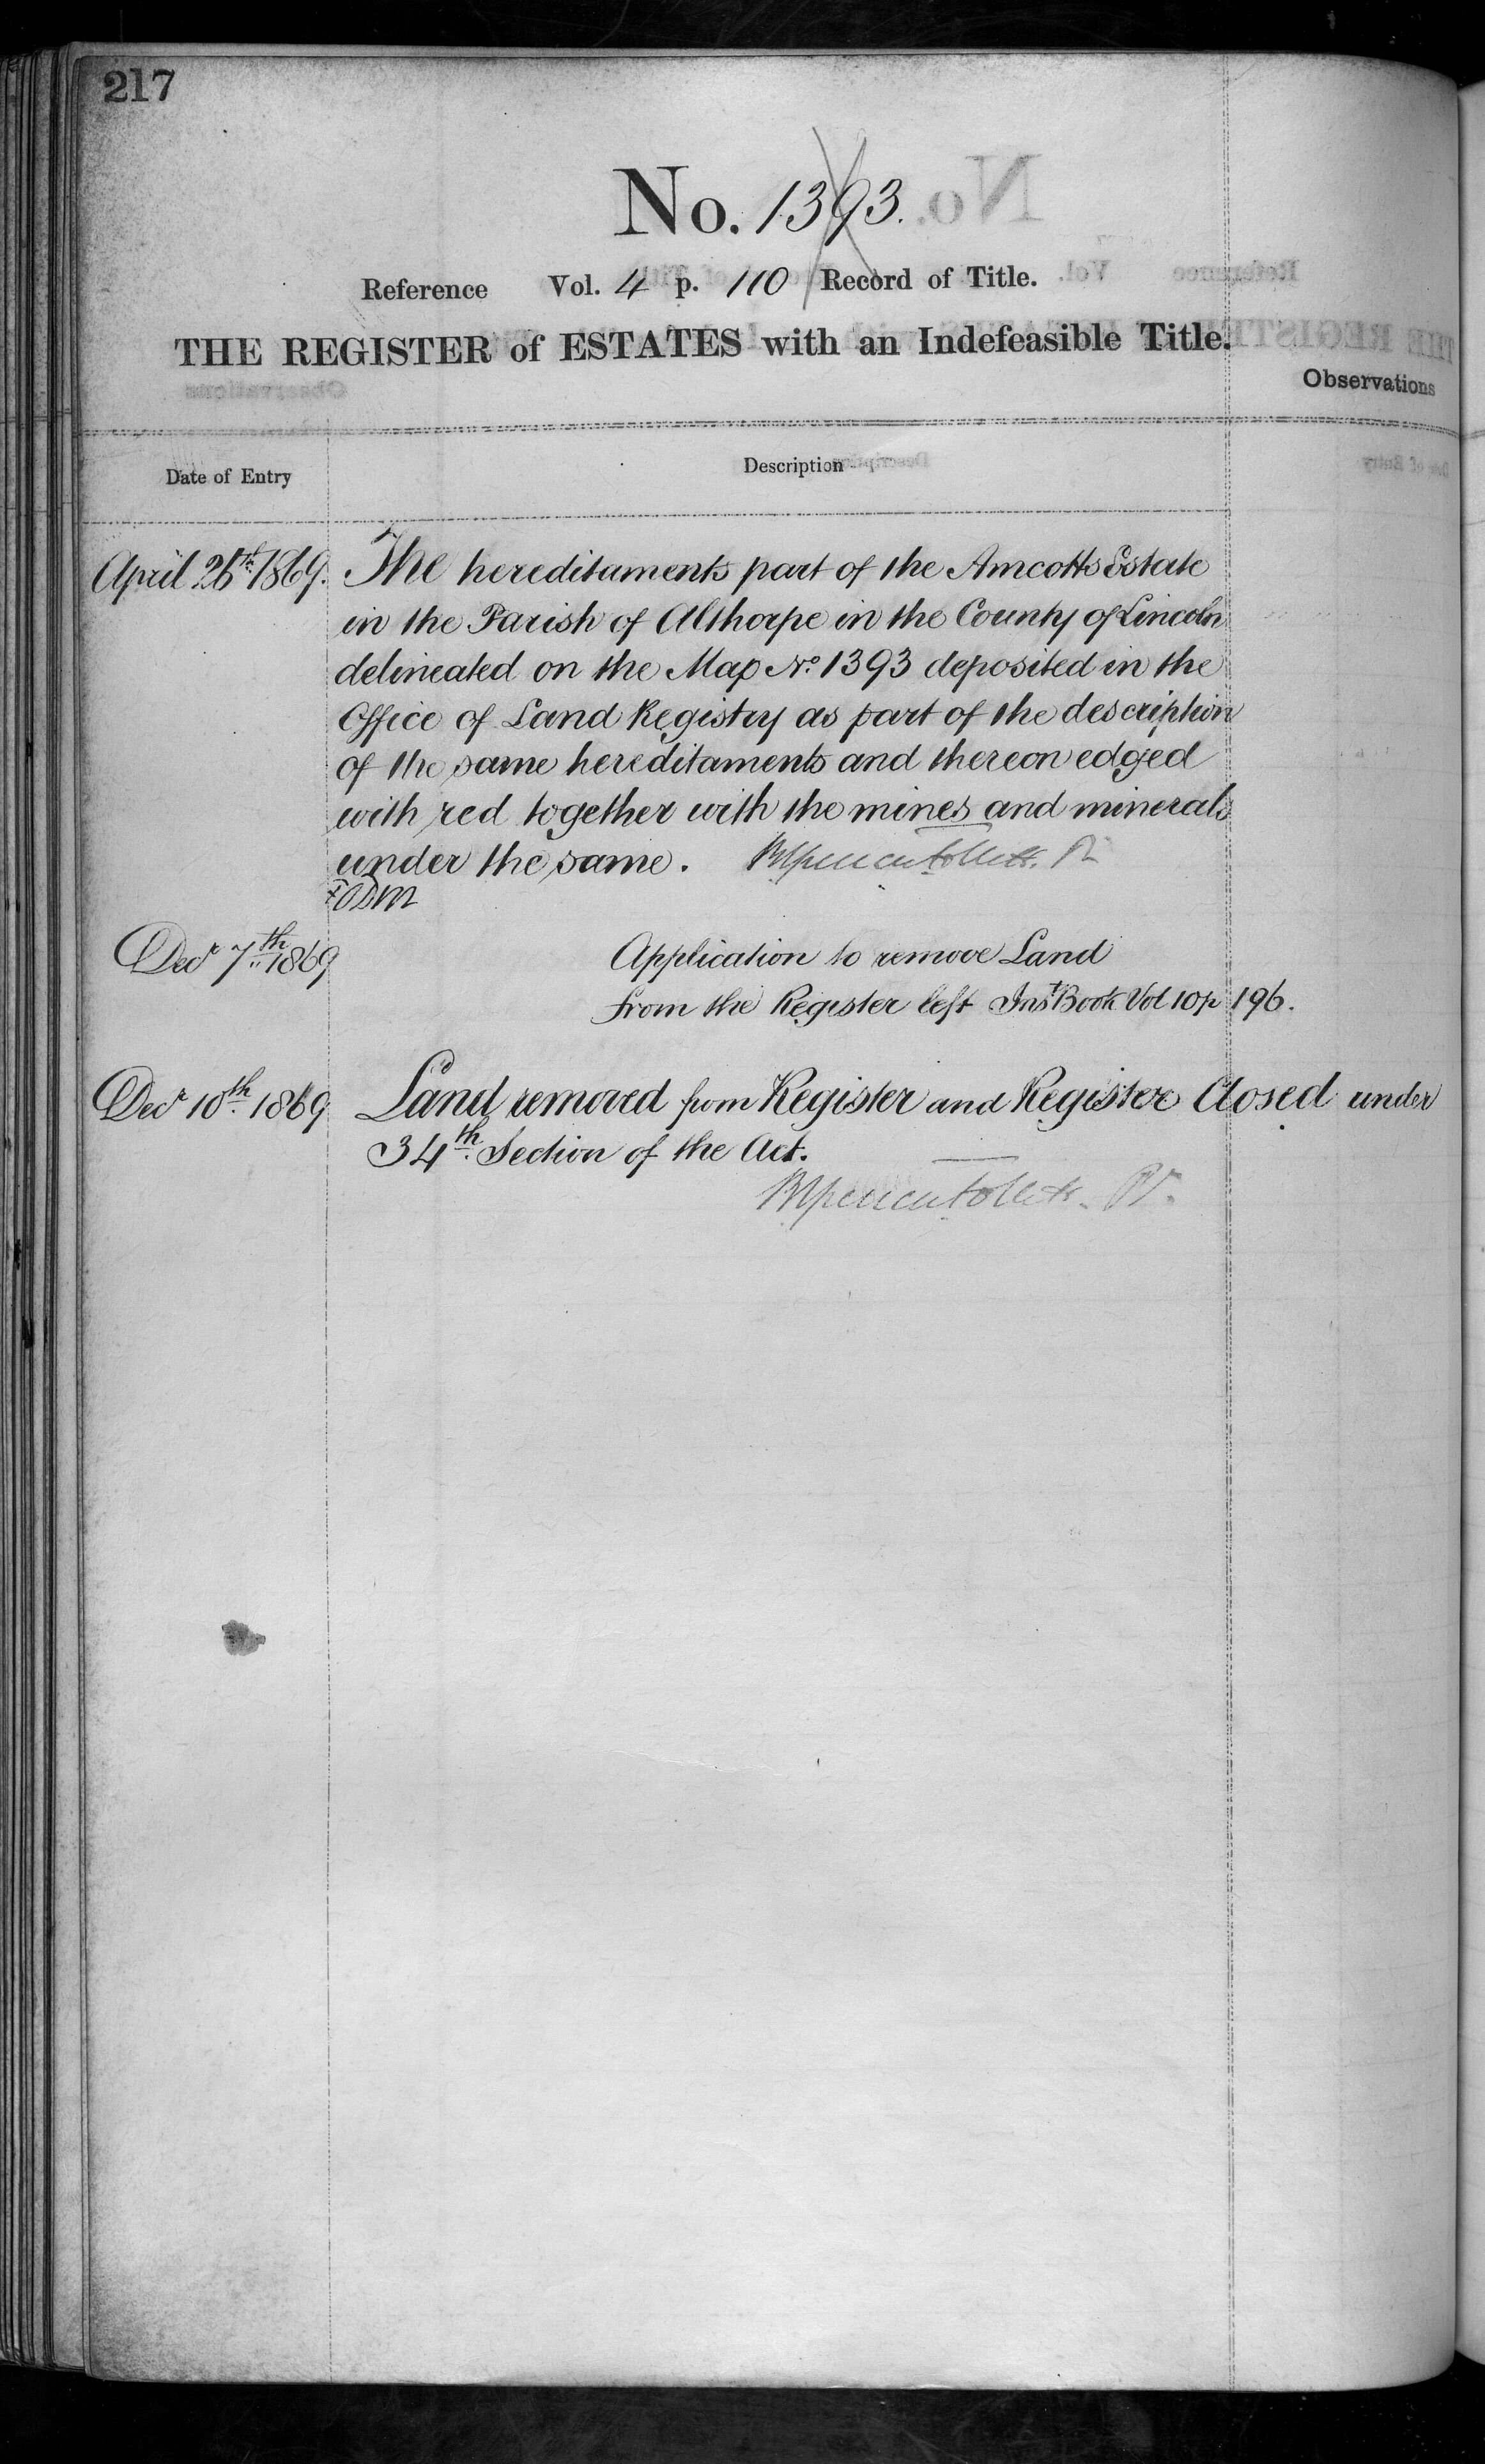 217
No. 1393.
Reference Vol. 4 p. 110 Record of Title.
THE REGISTER of ESTATES with an Indefeasible Title.
Observations
Date of Entry
Description
April 26th 1869. The hereditaments part of the Amcotts Estate
in the Parish of Althorpe in the County of Lincoln
delineated on the Map No. 1393 deposited in the
Office of Land Registry as part of the description
of the same hereditaments and thereon edged
with red together with the mines and minerals
under the same.
Decr 7th 1869 Application to remove Land
from the Register left Inst Book Vol 10 p 196.
Decr 10th 1869 Land removed from Register and Register Closed under
34th Section of the Act.